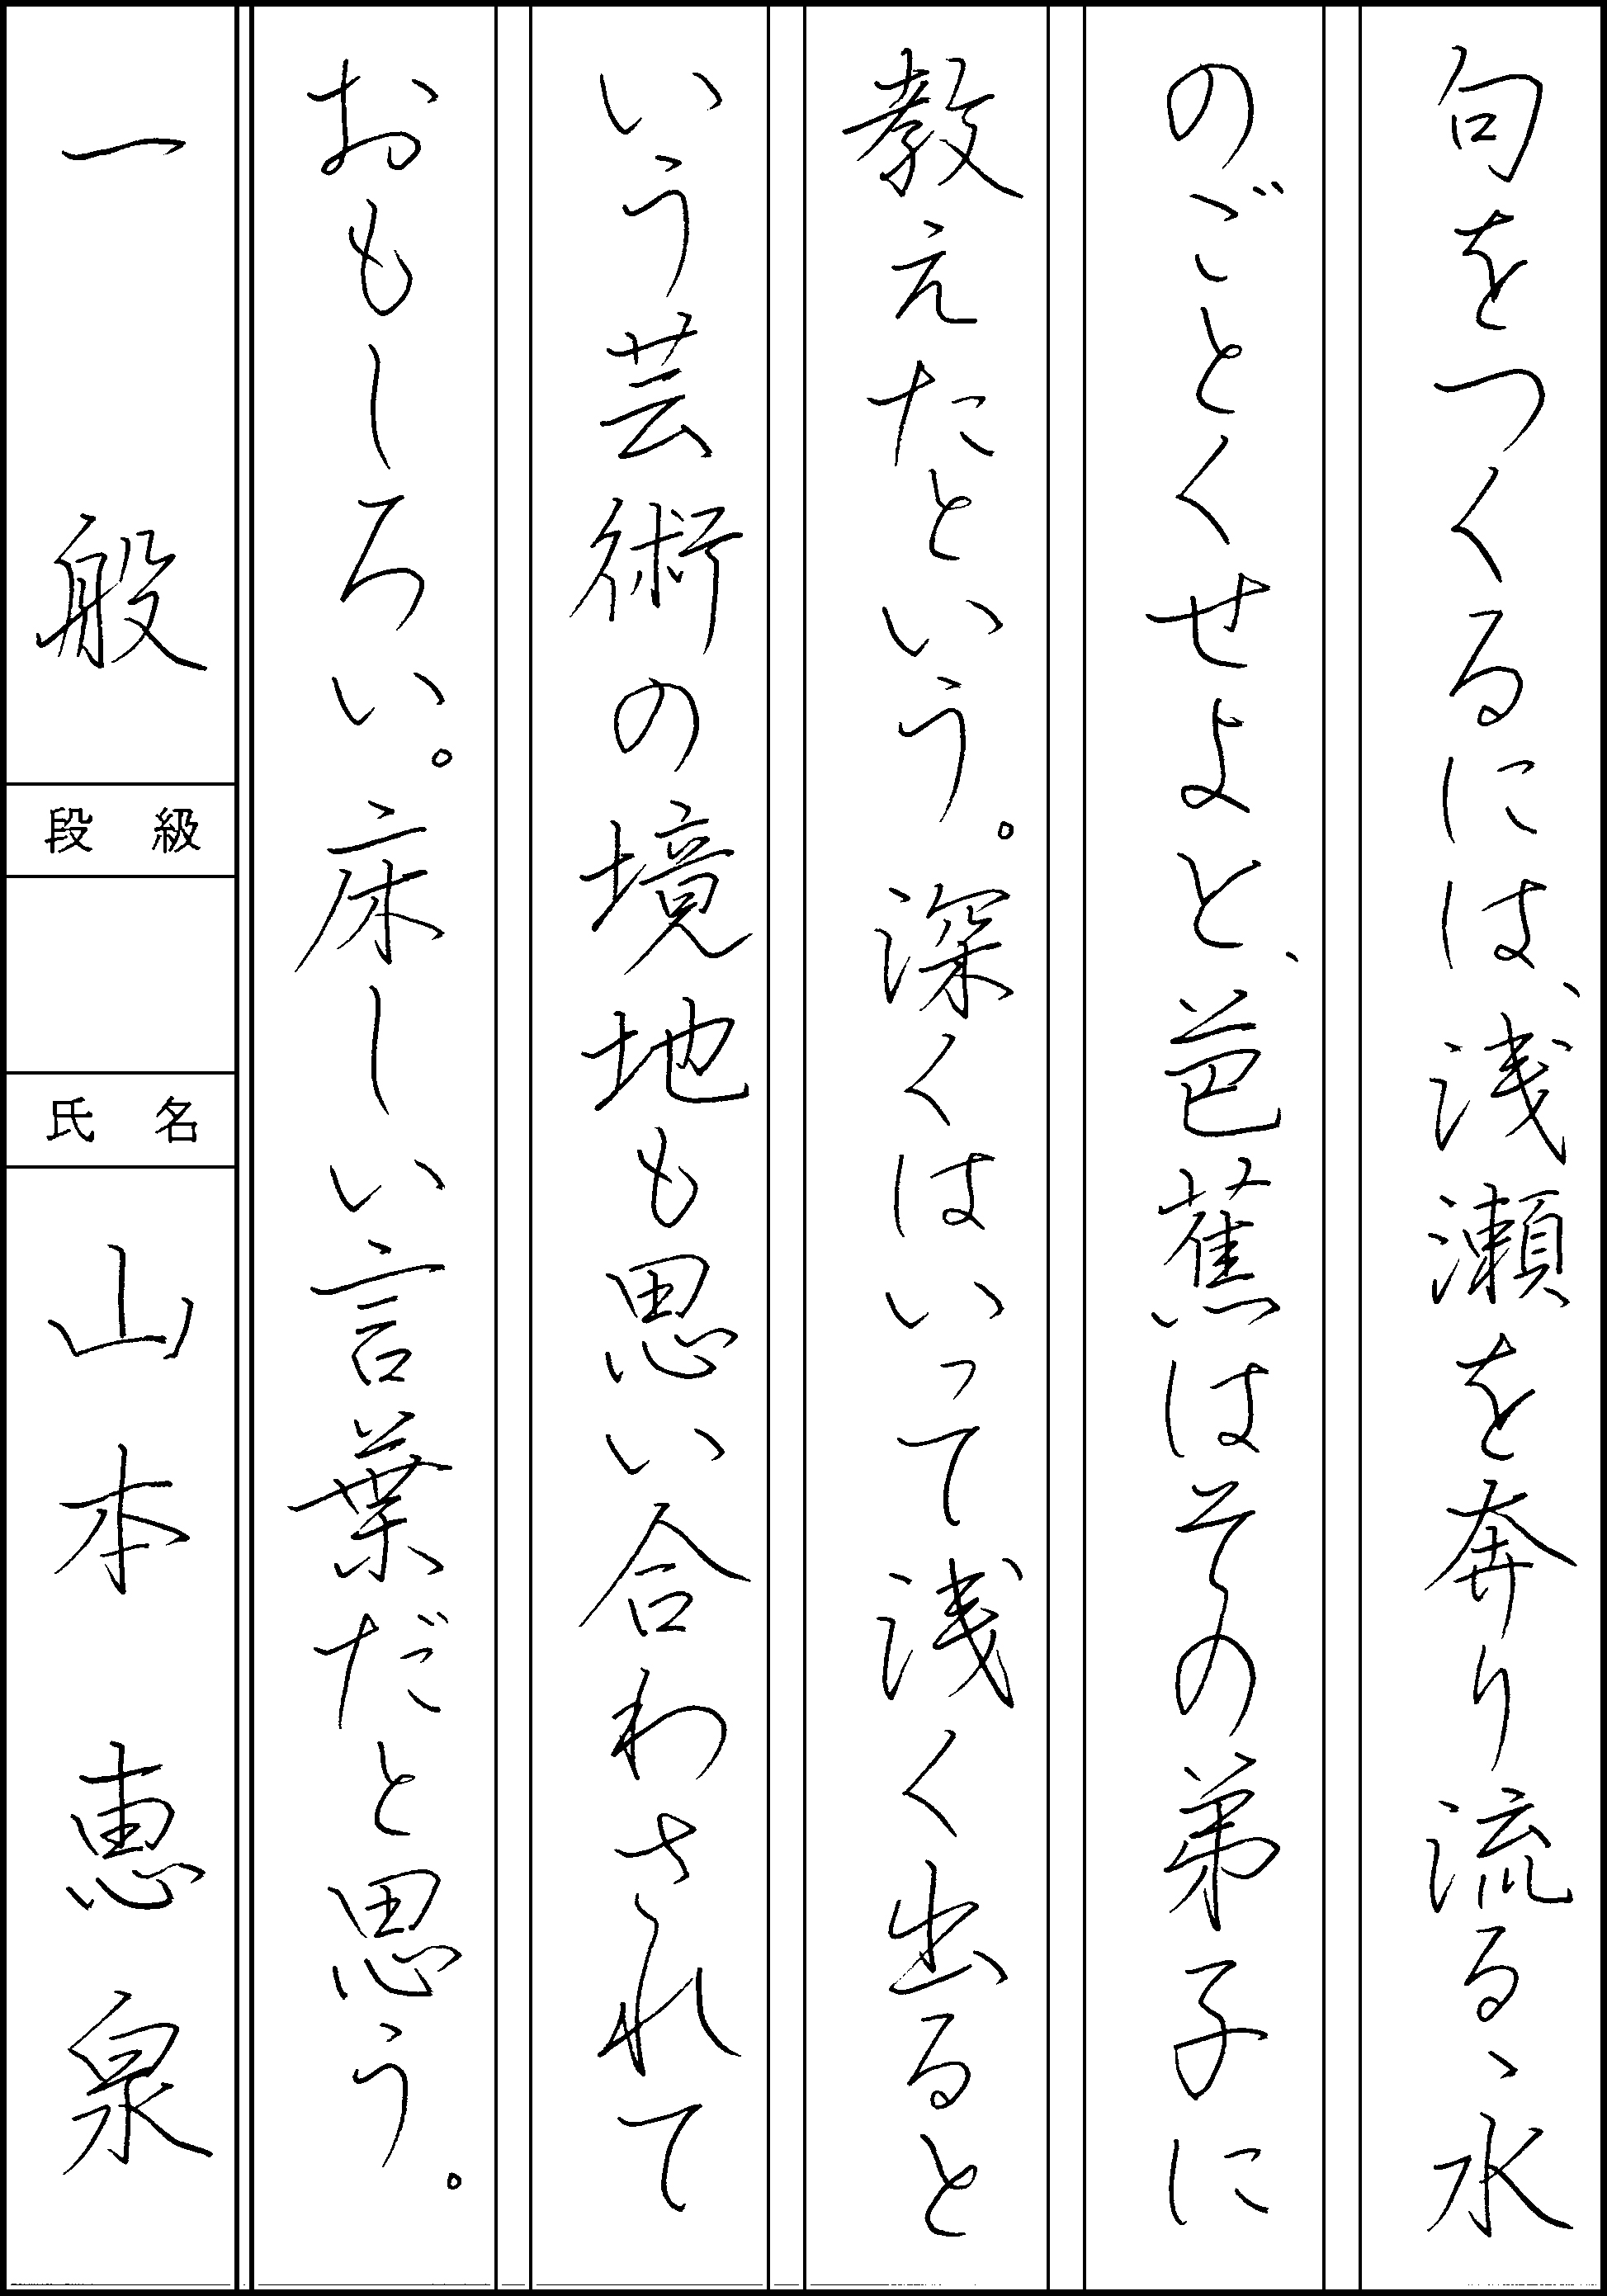 句をつくるには、浅瀬を奔り流るゝ水
のごとくせよと、芭蕉はその弟子に
教えたという。深くはいって浅く出ると
いう芸術の境地も思い合わされて
おもしろい。床しい言葉だと思う。
一般
段級
氏名
山本恵泉